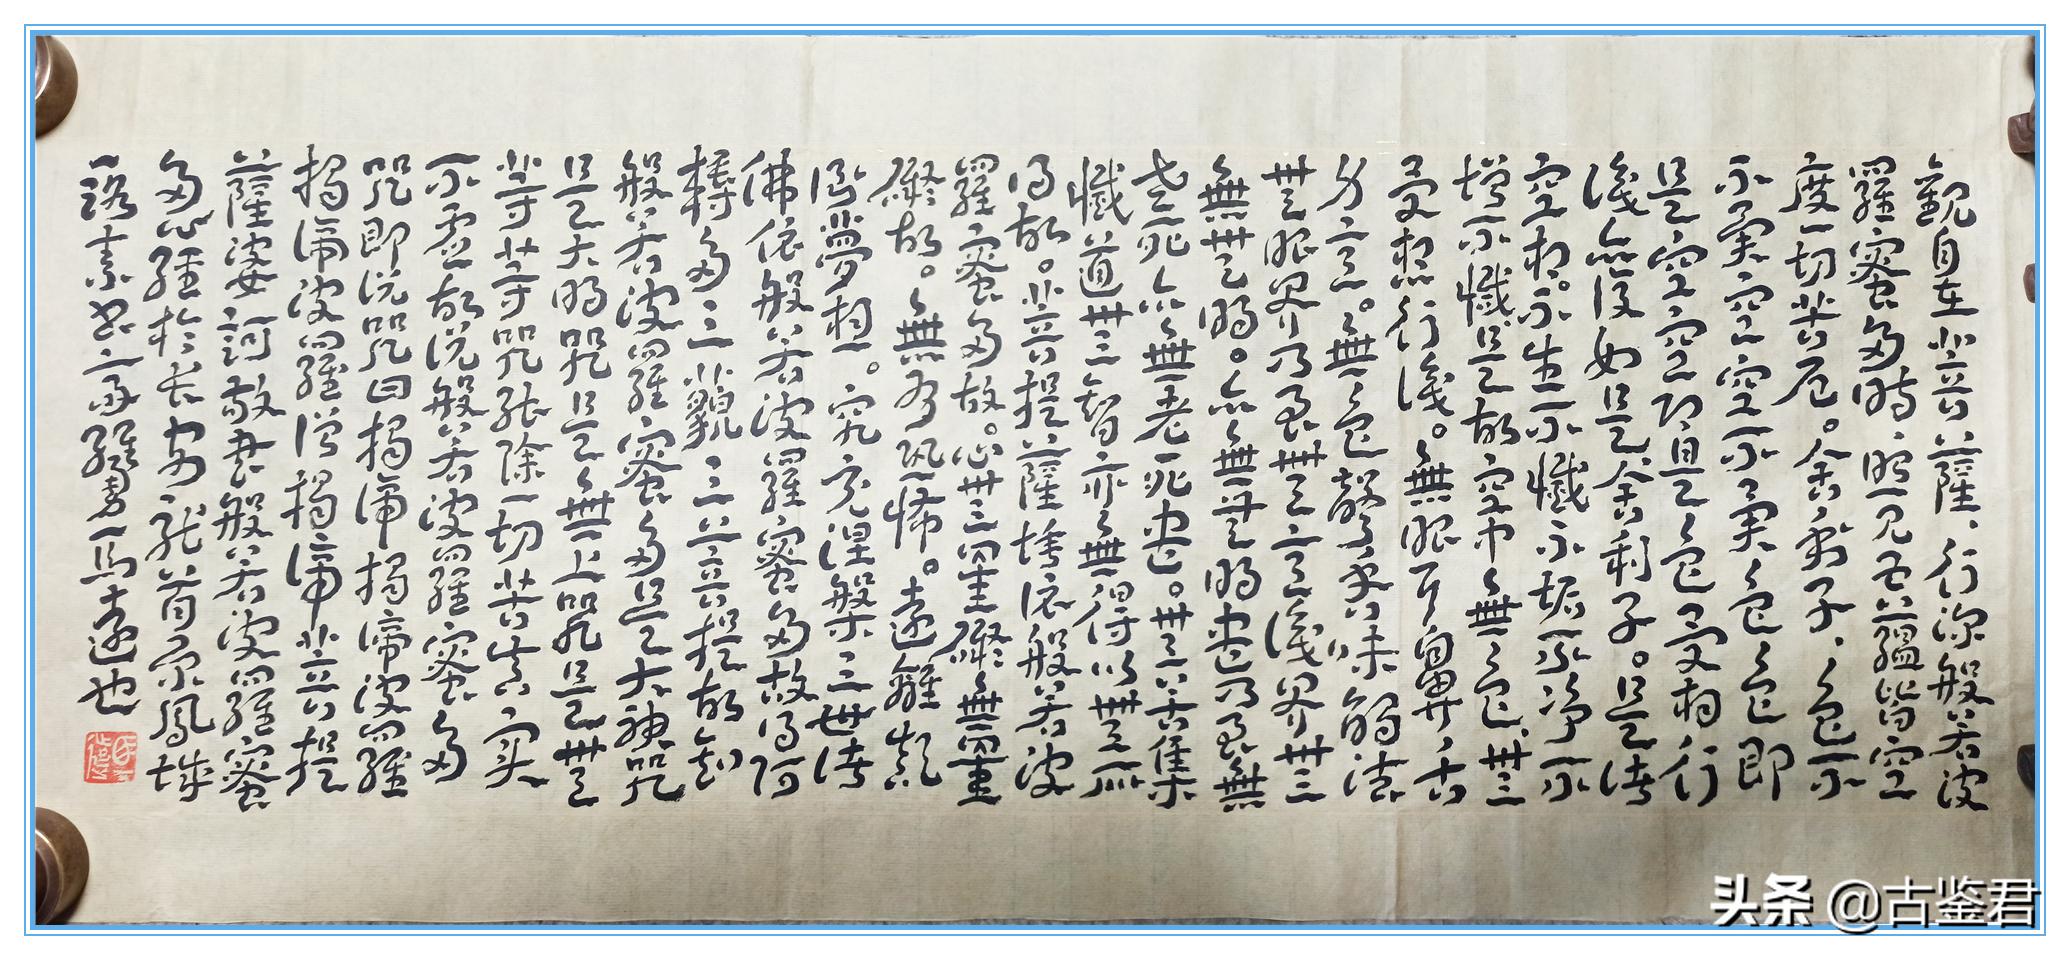 觀自在菩薩、行深般若波
羅蜜多時、照見五蘊皆空
度一切苦厄。舍利子、色不
不異空空不異色色即
是空空即是色受想行
識亦復如是。舍利子。是諸
空相。不生不滅不垢不淨不
增不減是故空中無色、無
受想行識。無眼耳鼻舌
身意。無色聲香味觸法
無眼界乃至無意識界無
無無明。亦無無明盡乃至無
老死亦無老死盡。無苦集
滅道無智亦無得以無所
得故。菩提薩埵依般若波
羅蜜多故。心無罣礙無罣
礙故。無有恐怖。遠離顛
倒夢想。究竟涅槃三世諸
佛依般若波羅蜜多故得阿
耨多三藐三菩提故知
般若波羅蜜多是大神咒
是大明咒是無上咒是無
等等咒能除一切苦真實
不虛故說般若波羅蜜多
咒即說咒曰揭諦揭諦波羅
揭諦波羅僧揭諦菩提
薩婆訶敬書般若波羅蜜
多心經於長安龍首原鳳城
馬遠也
头条 @古鉴君